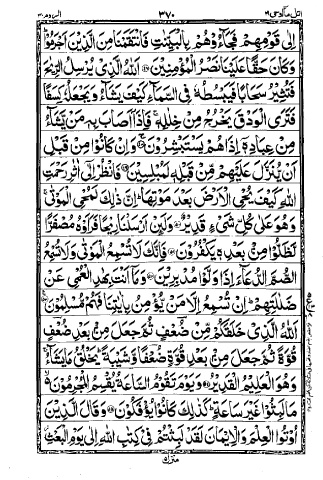 اتل مااوحی ۲۱ ۳۷۰ الروم ۳۰
اِلٰى قَوْمِهِمْ فَجَآءُوْهُمْ بِالْبَيِّنٰتِ فَانْتَقَمْنَا مِنَ الَّذِيْنَ اَجْرَمُوْا
وَكَانَ حَقًّا عَلَيْنَا نَصْرُ الْمُؤْمِنِيْنَ اَللّٰهُ الَّذِيْ يُرْسِلُ الرِّيٰحَ
فَتُثِيْرُ سَحَابًا فَيَبْسُطُهٗ فِي السَّمَآءِ كَيْفَ يَشَآءُ وَيَجْعَلُهٗ كِسَفًا
فَتَرَى الْوَدْقَ يَخْرُجُ مِنْ خِلٰلِهٖ فَاِذَآ اَصَابَ بِهٖ مَنْ يَّشَآءُ
مِنْ عِبَادِهٖٓ اِذَا هُمْ يَسْتَبْشِرُوْنَ وَاِنْ كَانُوْا مِنْ قَبْلِ
اَنْ يُّنَزَّلَ عَلَيْهِمْ مِّنْ قَبْلِهٖ لَمُبْلِسِيْنَ فَانْظُرْ اِلٰٓى اٰثٰرِ رَحْمَتِ
اللّٰهِ كَيْفَ يُحْيِ الْاَرْضَ بَعْدَ مَوْتِهَا اِنَّ ذٰلِكَ لَمُحْيِ الْمَوْتٰى
وَهُوَ عَلٰى كُلِّ شَيْءٍ قَدِيْرٌ وَلَئِنْ اَرْسَلْنَا رِيْحًا فَرَاَوْهُ مُصْفَرًّا
لَّظَلُّوْا مِنْ بَعْدِهٖ يَكْفُرُوْنَ فَاِنَّكَ لَا تُسْمِعُ الْمَوْتٰى وَلَا تُسْمِعُ
الصُّمَّ الدُّعَآءَ اِذَا وَلَّوْا مُدْبِرِيْنَ وَمَآ اَنْتَ بِهٰدِ الْعُمْيِ عَنْ
ضَلٰلَتِهِمْ اِنْ تُسْمِعُ اِلَّا مَنْ يُّؤْمِنُ بِاٰيٰتِنَا فَهُمْ مُّسْلِمُوْنَ
اَللّٰهُ الَّذِيْ خَلَقَكُمْ مِّنْ ضُعْفٍ ثُمَّ جَعَلَ مِنْ بَعْدِ ضُعْفٍ
قُوَّةً ثُمَّ جَعَلَ مِنْ بَعْدِ قُوَّةٍ ضُعْفًا وَّشَيْبَةً يَخْلُقُ مَا يَشَآءُ
وَهُوَ الْعَلِيْمُ الْقَدِيْرُ وَيَوْمَ تَقُوْمُ السَّاعَةُ يُقْسِمُ الْمُجْرِمُوْنَ
مَا لَبِثُوْا غَيْرَ سَاعَةٍ كَذٰلِكَ كَانُوْا يُؤْفَكُوْنَ وَقَالَ الَّذِيْنَ
اُوْتُوا الْعِلْمَ وَالْاِيْمَانَ لَقَدْ لَبِثْتُمْ فِيْ كِتٰبِ اللّٰهِ اِلٰى يَوْمِ الْبَعْثِ
منزل۵